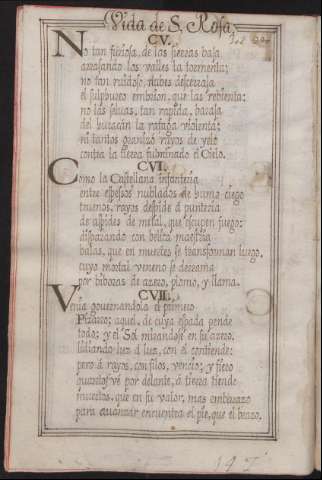 Vida de S. Rosa
CV.
No tan furiosa, de las sierras baja
arrasando los valles la tormenta;
no tan ruidoso, nubes descerraja
el sulphureo embrion, que las rebienta:
no las selvas, tan rapida,
del huracàn la rafaga violenta;
ni tantos granizò rayos de yelo
contra la tierra fulminado el Cielo.
CVI.
Como la Castellana infanteria
entre espessos nublados de humo ciego
truenos, rayos despide à punteria
de aspides de metal, que escupen fuego:
disparando con belica maestria
balas, que en muertes se transforman luego,
cuyo mortal veneno se derrama
por viboras de azero, plomo, y llama.
CVII.
Venia governandola el primero
Pizarro; aquel, de cuya espada pende
todo; y el Sol mirandose en su azero,
lidiando luz à luz, con el contiende:
pero à rayos, con filos, venciò; y fiero
quantos vè por delante, à tierra tiende
muertos, que en su valor, mas embarazo
para avanzar encuentra el pie, que el brazo.